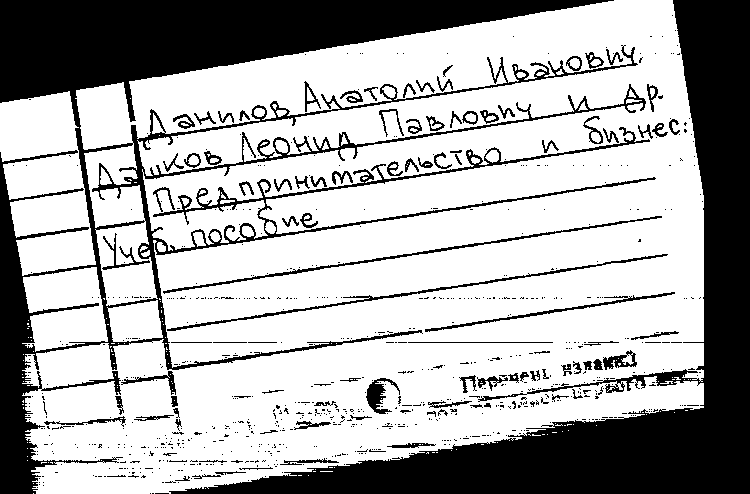 Данилов, Анатолий Иванович.
Дашков, Леонид Павлович и др.
Предпринимательство и бизнес:
Учеб. пособие
Перечень издани
первого